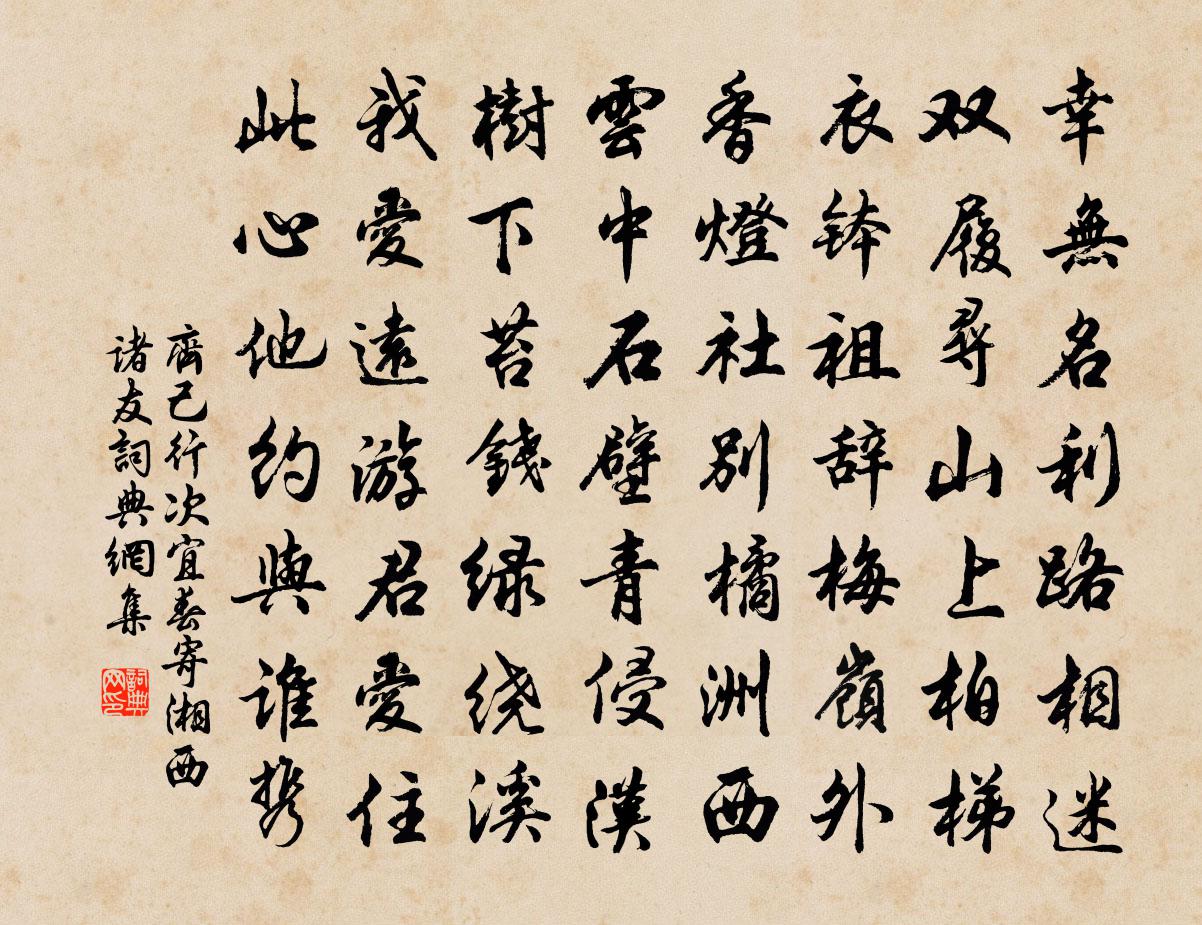 幸無名利路相迷
双履尋山上柏梯
衣钵祖辞梅嶺外
香燈社别橘洲西
雲中石壁青侵漢
樹下苔錢緑绕溪
我愛遠游君愛住
此心他约與谁携
齊己行次宜春寄湘西
诸友詞典網集
詞典
网印